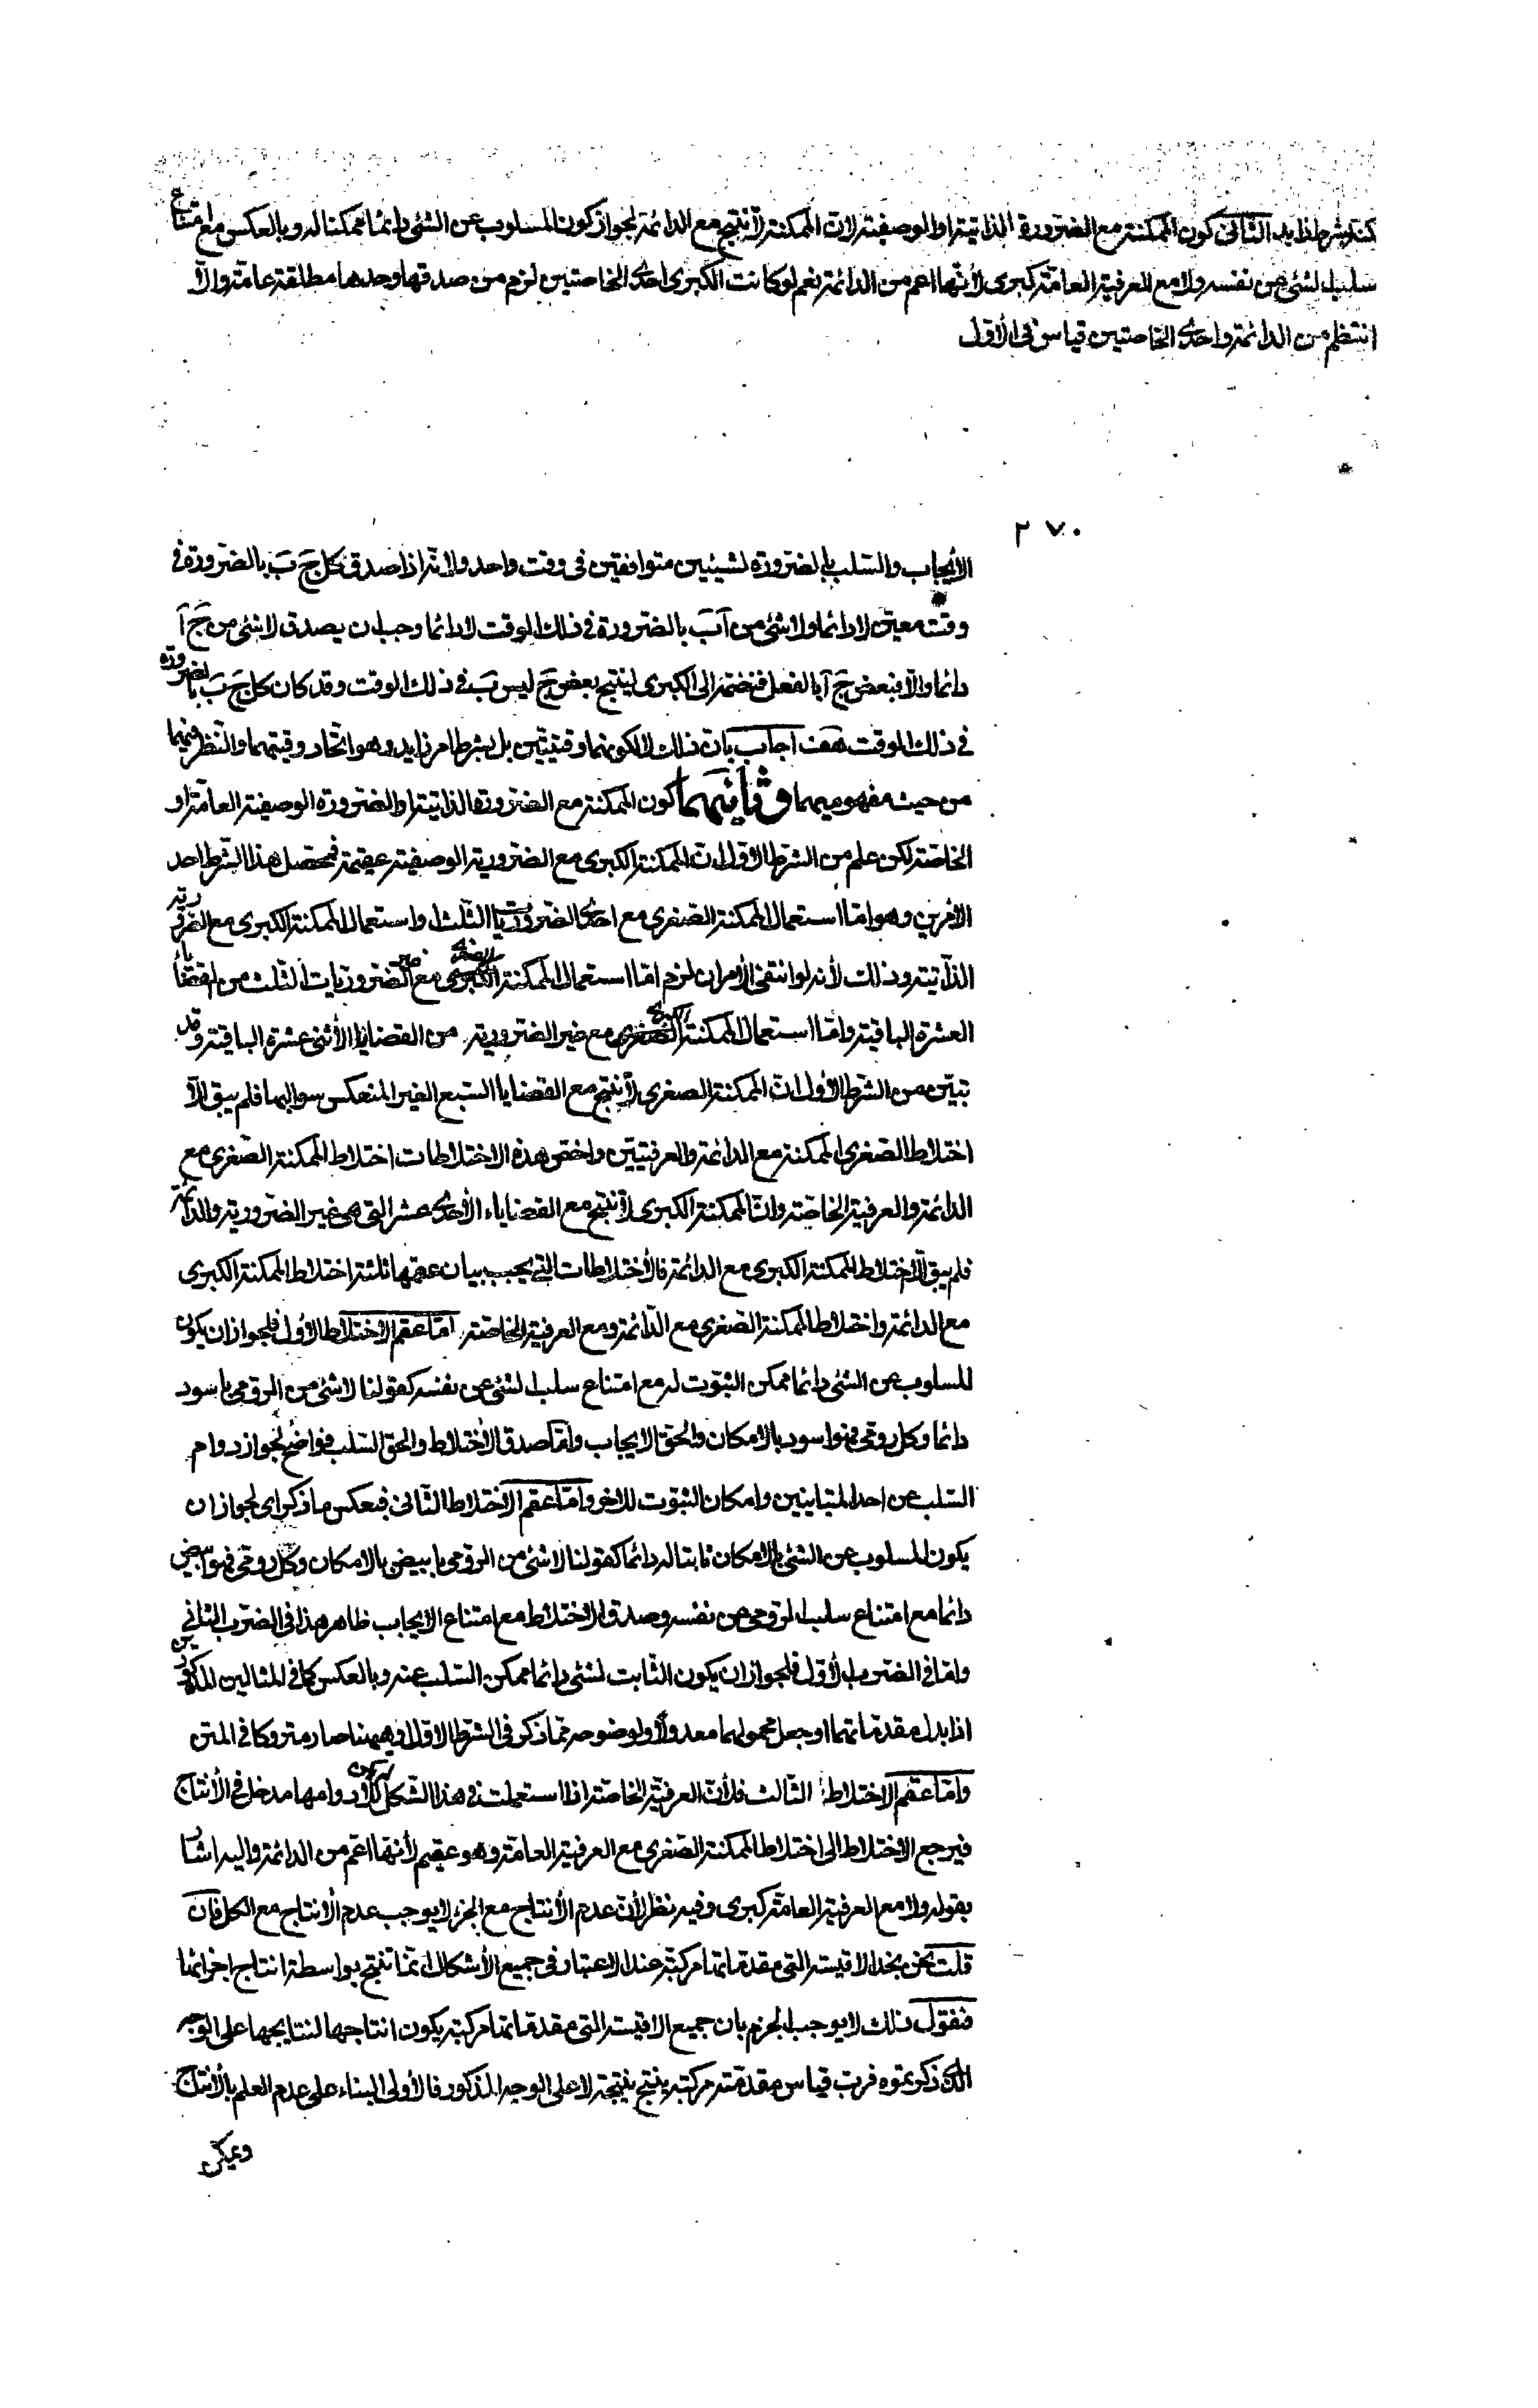 كنه بشرط زايد الثانى كون الممكنة مع الضرورة الذاتية او الوصفية لان الممكنة لا تنتج مع الدائمة لجواز كون المسلوب عن الشئ دائما ممكنا له و بالعكس مع امتناع
سلب الشئ عن نفسه ولا مع العرفية العامة كبرى لانها اعم من الدائمة نعم لو كانت الكبرى احدى الخاصتين لزم من صدقها وحدها مطلقة عامة والا
انتظم من الدائمة واحدى الخاصتين قياس فى الاول
٢٧٠
الايجاب والسلب بالضرورة لشيئين متوافقين فى وقت واحد ولانه اذا صدق كل جَ بَ بالضرورة فى
وقت معين لا دائما ولا شئ من آ بَ بالضرورة فى ذلك الوقت لا دائما وجب ان يصدق لا شئ من جَ آ
دائما والا فبعض جَ آ بالفعل فنضمه الى الكبرى لينتج بعض جَ ليس بَ فى ذلك الوقت وقد كان كل جَ بَ بالضرورة
فى ذلك الوقت هف اجاب بان ذلك لا لكونهما وقتيتين بل بشرط امر زايد وهو اتحاد وقتيهما والنظر فيهما
من حيث مفهوميهما وثانيهما كون الممكنة مع الضرورة الذاتية او الضرورة الوصفية العامة او
الخاصة لكن علم من الشرط الاول ان الممكنة الكبرى مع الضرورية الوصفية عقيمة فمحصل هذا الشرط احد
الامرين وهو اما استعمال الممكنة الصغرى مع احدى الضروريات الثلث او استعمال الممكنة الكبرى مع الضرورية
الذاتية وذلك لانه لو انتفى الامران لزم اما استعمال الممكنة الصغرى مع غير الضروريات الثلث من القضايا
العشرة الباقية واما استعمال الممكنة الكبرى مع غير الضرورية من القضايا الاثنى عشرة الباقية وقد
تبين من الشرط الاول ان الممكنة الصغرى لا تنتج مع القضايا السبع الغير المنعكس سوالبها فلم يبق الا
اختلاط الصغرى الممكنة مع الدائمة والعرفيتين واخص هذه الاختلاطات اختلاط الممكنة الصغرى مع
الدائمة والعرفية الخاصة وان الممكنة الكبرى لا تنتج مع القضايا الاحدى عشر التى هى غير الضرورية والدائمة
فلم يبق الا اختلاط الممكنة الكبرى مع الدائمة فالاختلاطات التى يجب بيان عقمها ثلثة اختلاط الممكنة الكبرى
مع الدائمة واختلاط الممكنة الصغرى مع الدائمة ومع العرفية الخاصة اما عقم الاختلاط الاول فلجواز ان يكون
المسلوب عن الشئ دائما ممكن الثبوت له مع امتناع سلب الشئ عن نفسه كقولنا لا شئ من الرومى باسود
دائما وكل رومى فهو اسود بالامكان والحق الايجاب واما صدق الاختلاط والحق السلب فواضح لجواز دوام
السلب عن احد المتباينين وامكان الثبوت للاخر واما عقم الاختلاط الثانى فبعكس ما ذكر اى لجواز ان
يكون المسلوب عن الشئ بالامكان ثابتا له دائما كقولنا لا شئ من الرومى بابيض بالامكان وكل رومى فهو ابيض
دائما مع امتناع سلب الرومى عن نفسه وصدق الاختلاط مع امتناع الايجاب ظاهر هذا فى الضرب الثانى
واما فى الضرب الاول فلجواز ان يكون الثابت لشئ دائما ممكن السلب عنه وبالعكس كما فى المثالين المذكورين
اذا بدل مقدماتهما او جعل محمولهما معدولا ولوضوحه مما ذكر فى الشرط الاول وههنا صار متروكا فى المتن
واما عقم الاختلاط الثالث فلان العرفية الخاصة اذا استعملت فى هذا الشكل لم يكن للادوامها مدخل فى الانتاج
فيرجع الاختلاط الى اختلاط الممكنة الصغرى مع العرفية العامة وهو عقيم لانها اعم من الدائمة واليه اشار
بقوله ولا مع العرفية العامة كبرى وفيه نظر لان عدم الانتاج مع الجزء لا يوجب عدم الانتاج مع الكل فان
قلت نحن نجد الاقيسة التى مقدماتها مركبة عند الاعتبار فى جميع الاشكال انما تنتج بواسطة انتاج اجزائها
فنقول ذلك لا يوجب الجزم بان جميع الاقيسة التى مقدماتها مركبة يكون انتاجها لنتايجها على الوجه
الذى ذكرتموه فرب قياس مقدمته مركبة ينتج نتيجة لا على الوجه المذكور فالاولى البناء على عدم العلم بالانتاج
ويمكن